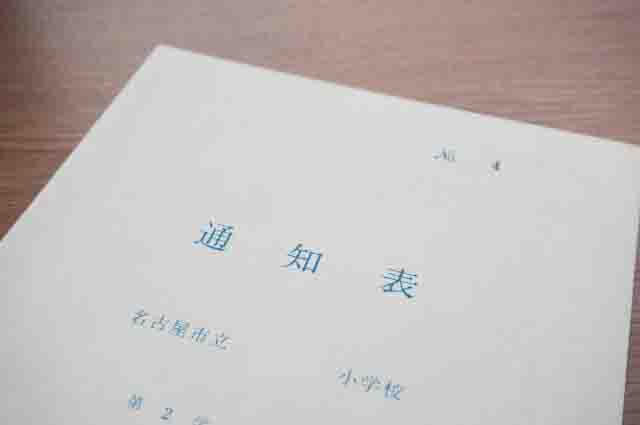 No. 4
通知表
名古屋市立 小学校
第2学